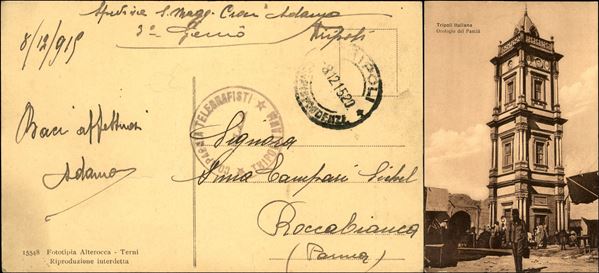 Spedisce S. Magg. Croci Adamo
3° Genio Tripoli
8/12/915
TRIPOLI
8.12.15.20
CORRISPONDENZE
COMPAGNIA TELEGRAFISTI
TRIPOLITANIA
Baci affettuosi
Adamo
Signora
Anna Campari
Roccabianca
(Parma)
13348 Fototipia Alterocca - Terni
Riproduzione interdetta
Tripoli Italiana
Orologio del Pascià